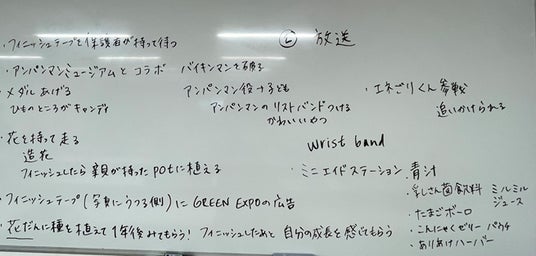 ・フィニッシュテープを保護者が持って待つ
放送
・アンパンマンミュージアムと コラボ バイキンマンを破る
・メダルあげる
ひものところがキャンディ
アンパンマン役→子ども
アンパンマンのリストバンドつける
かわいいやつ
・エネゴリくん参戦
追いかけられる
・花を持って走る
造花
フィニッシュしたら 親が持ったpotに植える
wrist band
・ミニエイドステーション
青汁
・乳さん菌飲料 ミルミル
ジュース
・たまごボーロ
・こんにゃくゼリー パウチ
・ありあけハーバー
・フィニッシュテープ(写真にうつる側)に GREEN EXPOの広告
・花だんに種を植えて1年後みてもらう! フィニッシュしたあと 自分の成長を感じてもらう